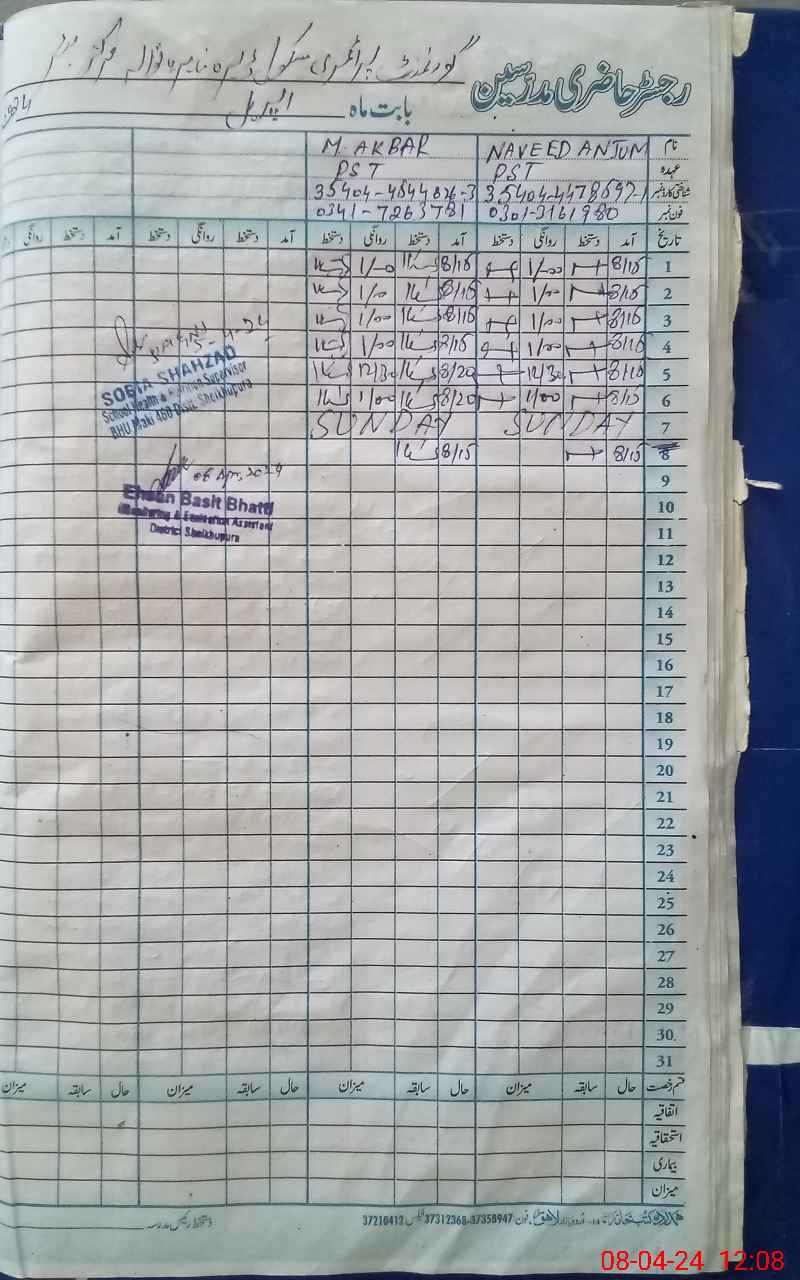 رجسٹر حاضری مدرسین
گورنمنٹ پرائمری سکول
بابت ماہ اپریل
نام NAVEED ANJUM M. AKBAR
عہدہ PST PST
شناختی کارڈ نمبر 35404-4478697-1 35404-4844826-3
فون نمبر 0301-3161980 0341-7263781
تاریخ آمد دستخط روانگی دستخط آمد دستخط روانگی دستخط آمد دستخط روانگی دستخط آمد دستخط روانگی
1 8/15 1/00 8/15 1/00
2 8/15 1/00 8/15 1/00
3 8/15 1/00 8/15 1/00
4 8/15 1/00 1/00
5 8/10 12/30 8/20 12/30
6 8/10 1/00 8/20 1/00
7 SUNDAY SUNDAY
8 8/15 8/15
SOBIA SHAHZAD
School Health & Nutrition Supervisor
BHU Maki 460 Distt. Sheikhupura
06 Apr, 2024
Ehsan Basit Bhatti
Monitoring & Evaluation Assistant
District Sheikhupura
9
10
11
12
13
14
15
16
17
18
19
20
21
22
23
24
25
26
27
28
29
30
31
قسم رخصت حال سابقہ میزان حال سابقہ میزان حال سابقہ میزان حال سابقہ میزان
اتفاقیہ
استحقاقیہ
بیماری
میزان
اردو بازار لاہور فون 37358947-37312368 فیکس 37210412
دستخط رئیس مدرسہ
08-04-24 12:08